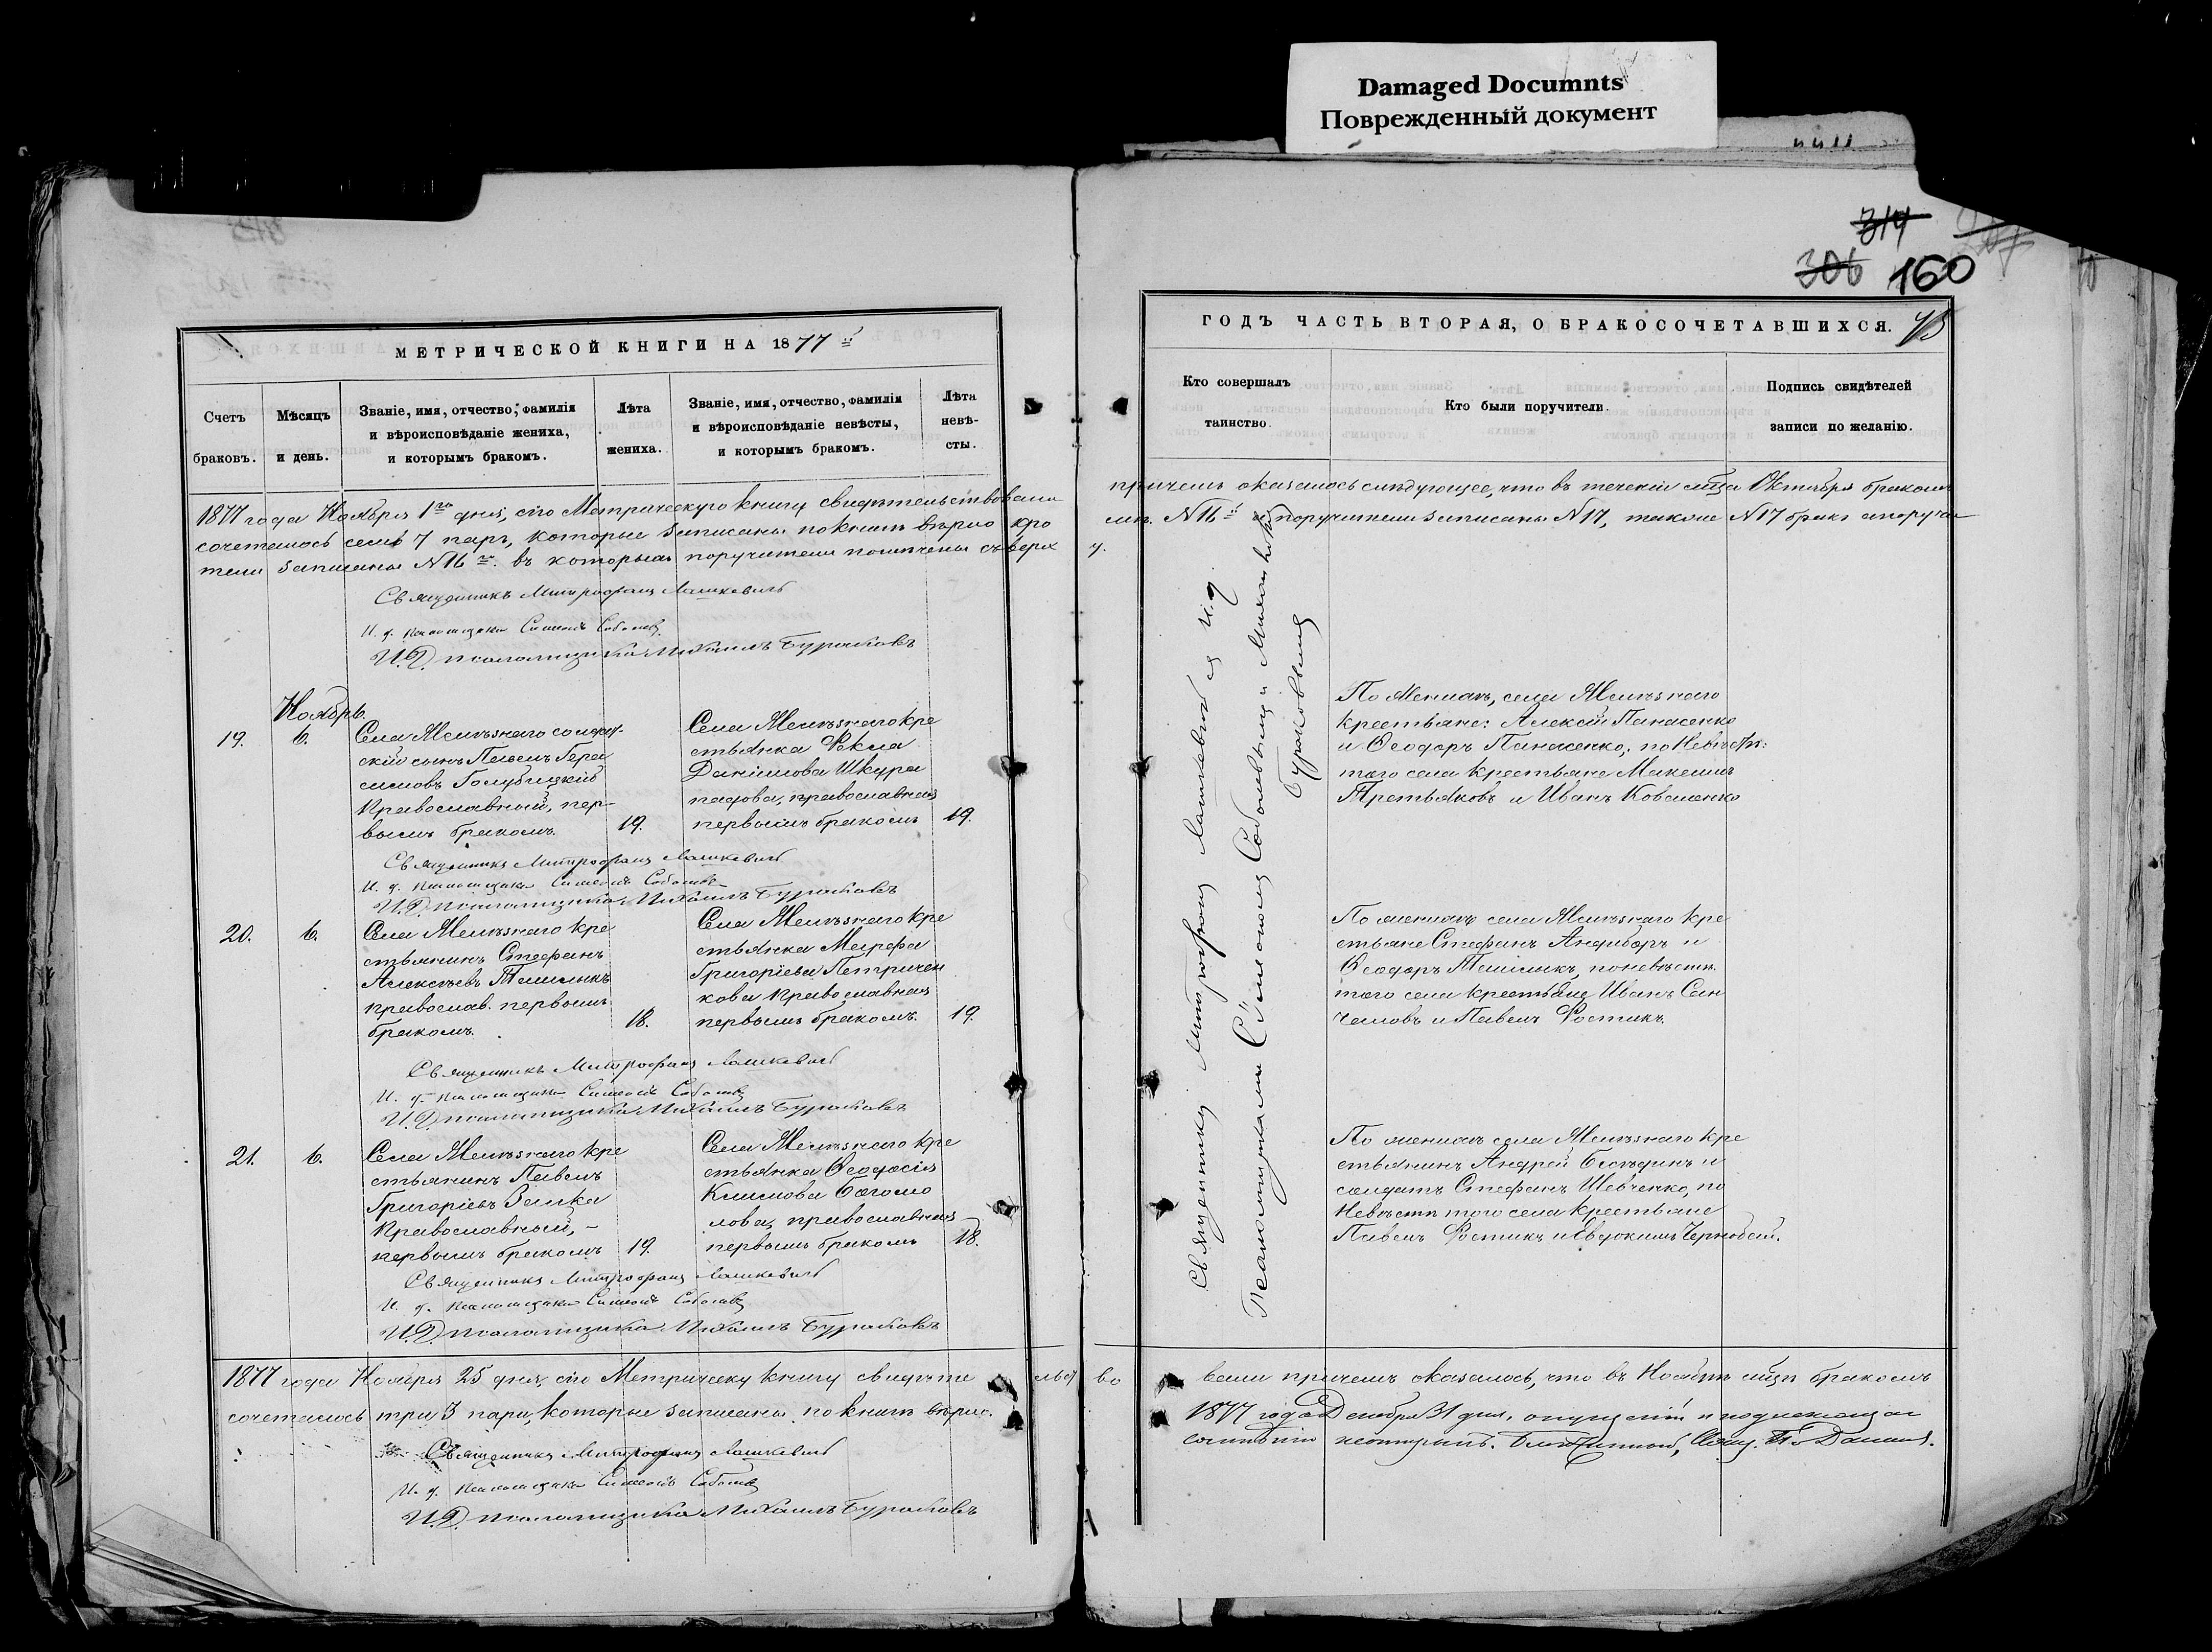 Damaged Documnts
Поврежденный документ
314
306 160
МЕТРИЧЕСКОЙ КНИГИ НА 1877 й
Счетъ браковъ.
Мѣсяцъ и день.
Званіе, имя, отчество, фамилія
и вѣроисповѣданіе жениха,
и которымъ бракомъ.
Лѣта
жениха.
Званіе, имя, отчество, фамилія
и вѣроисповѣданіе невѣсты,
и которымъ бракомъ.
Лѣта
невѣ-
сты.
1877 года Ноября 1го дня, сію Метрическую книгу свидѣтельствовали
сочеталось семь 7 паръ, которые записаны по книгѣ вѣрно кро
тели записаны №16 въ которыхъ поручители помѣчены съ верх
Священникъ Митрофанъ Лашкевичъ
И. д. псаломщика Симеонъ Соболевъ
И. Д. псаломщика Михаилъ Бураковъ
Ноябрь
19.
6.
Села
скій сынъ Павелъ Гера
симовъ Голубицкій
Православный, пер-
вымъ бракомъ.
19.
Села кре
стьянка Фекла
Даніилова Шкура
падова, православная
первымъ бракомъ
19.
Священникъ Митрофанъ Лашкевичъ
И. д. псаломщика Симеонъ Соболевъ
И. Д. псаломщика Михаилъ Бураковъ
20.
6.
Села кре
стьянинъ Стефанъ
Алексѣевъ
православ. первымъ
бракомъ.
18.
Села кре
стьянка Марфа
Григоріева Петричен
кова Православная
первымъ бракомъ.
19.
Священникъ Митрофанъ Лашкевичъ
И. д. псаломщика Симеонъ Соболевъ
И. Д. псаломщика Михаилъ Бураковъ
21.
6.
Села кре
стьянинъ Павелъ
Григоріевъ Заика
Православный, -
первымъ бракомъ
19.
Села кре
стьянка Ѳеодосія
Климова Богомо
лова, православная
первымъ бракомъ
18.
Священникъ Митрофанъ Лашкевичъ
И. д. псаломщика Симеонъ Соболевъ
И. Д. псаломщика Михаилъ Бураковъ
1877 года Ноября 25 дня, сію Метрическу книгу свидѣте
сочеталось три 3 пары, которые записаны по книгѣ вѣрно.
Священникъ Митрофанъ Лашкевичъ
И. д. псаломщика Симеонъ Соболевъ
И. Д. псаломщика Михаилъ Бураковъ
ГОДЪ ЧАСТЬ ВТОРАЯ, О БРАКОСОЧЕТАВШИХСЯ.
Кто совершалъ
таинство.
Кто были поручители.
Подпись свидѣтелей
записи по желанію.
причемъ оказалось слѣдующее, что въ теченіи мѣца Октября бракомъ
№16й а поручители записаны №17, также №17 бракъ а поручи
у.
Священнику Митрофану Лашкевичъ и И. д.
Псаломщиками Симеономъ Соболевымъ и
Бураковымъ
По женихѣ, села
крестьяне: Алексѣй Панасенко
и Ѳеодоръ Панасенко; по Невѣстѣ:
того села крестьяне Максимъ
Третьяковъ и Иванъ Коваленко
По женихѣ села кре
стьяне Стефанъ и
Ѳеодоръ по невѣстѣ
того села крестьяне Иванъ
и Павелъ Ростикъ.
По женихѣ села кре
стьянинъ Андрей и
солдатъ Стефанъ Шевченко, по
Невѣстѣ того села крестьяне
Павелъ Ростикъ и Евдокимъ Чернобай.
льст во
вали причемъ оказалось, что въ Ноябрѣ мѣцѣ бракомъ
1877 года Декабря 31 дня, опущеній и подлежащаго
сомнѣнію неоткрытъ. Благочинный, Свящ.